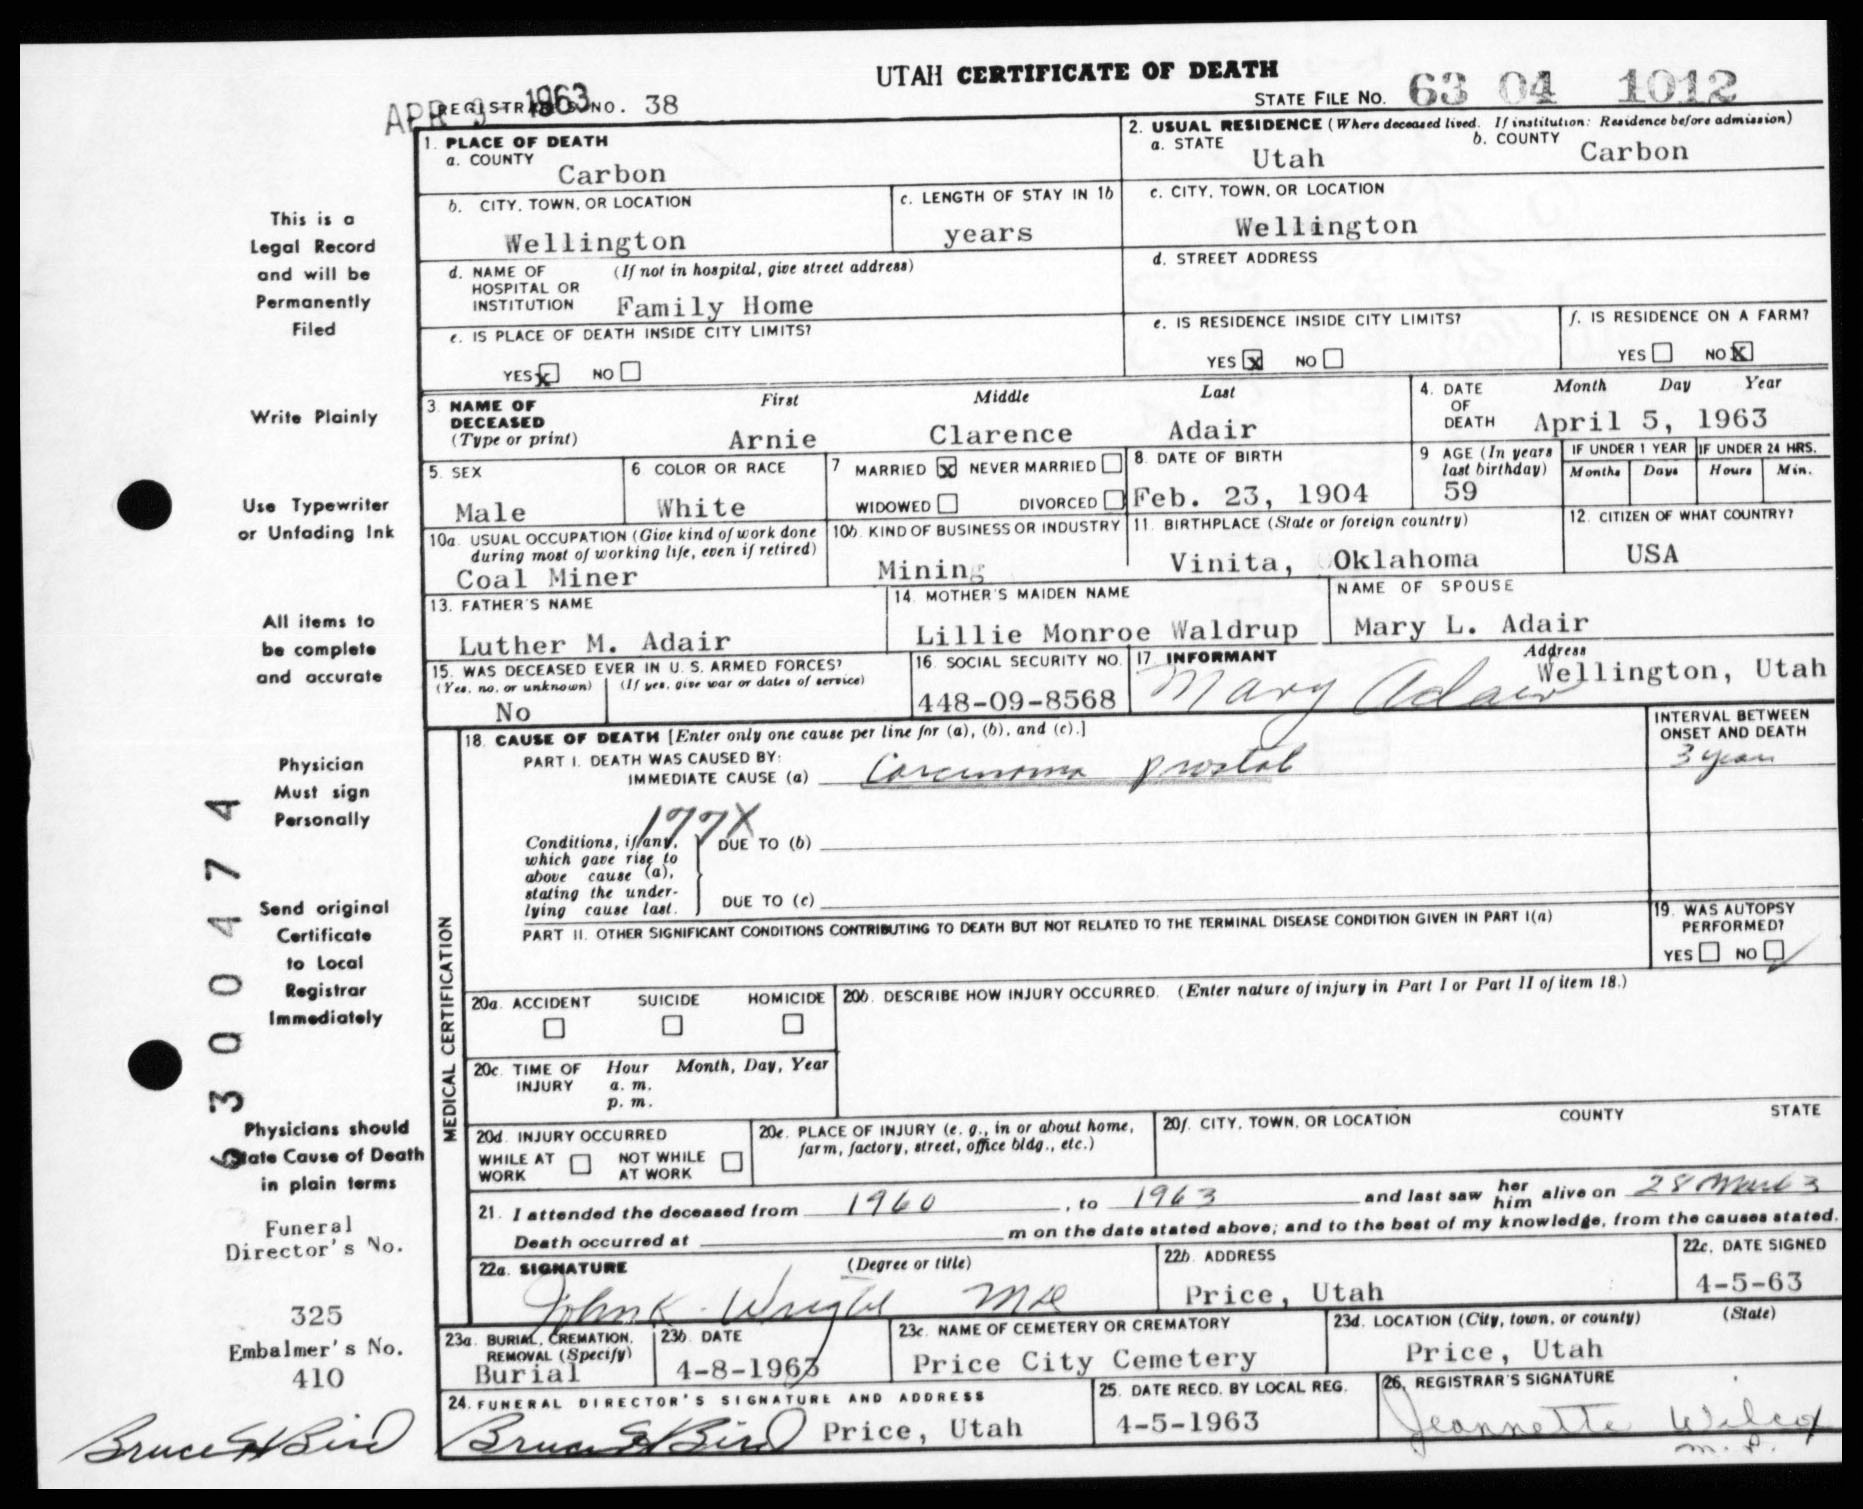 UTAH CERTIFICATE OF DEATH
APR 9 1963
REGISTRAR'S NO. 38
STATE FILE NO. 63 04 1012
1. PLACE OF DEATH
a. COUNTY
Carbon
2. USUAL RESIDENCE (Where deceased lived. If institution: Residence before admission)
a. STATE Utah b. COUNTY Carbon
b. CITY, TOWN, OR LOCATION
Wellington
c. LENGTH OF STAY IN 1b
years
c. CITY, TOWN, OR LOCATION
Wellington
d. NAME OF HOSPITAL OR INSTITUTION (If not in hospital, give street address)
Family Home
d. STREET ADDRESS
e. IS PLACE OF DEATH INSIDE CITY LIMITS?
YES x NO
e. IS RESIDENCE INSIDE CITY LIMITS?
YES x NO
f. IS RESIDENCE ON A FARM?
YES NO x
3. NAME OF DECEASED (Type or print)
First Middle Last
Arnie Clarence Adair
4. DATE OF DEATH Month Day Year
April 5, 1963
5. SEX
Male
6 COLOR OR RACE
White
7 MARRIED x NEVER MARRIED
WIDOWED DIVORCED
8. DATE OF BIRTH
Feb. 23, 1904
9 AGE (In years last birthday)
59
IF UNDER 1 YEAR
Months Days
IF UNDER 24 HRS.
Hours Min.
10a. USUAL OCCUPATION (Give kind of work done during most of working life, even if retired)
Coal Miner
10b. KIND OF BUSINESS OR INDUSTRY
Mining
11. BIRTHPLACE (State or foreign country)
Vinita, Oklahoma
12. CITIZEN OF WHAT COUNTRY?
USA
13. FATHER'S NAME
Luther M. Adair
14. MOTHER'S MAIDEN NAME
Lillie Monroe Waldrup
NAME OF SPOUSE
Mary L. Adair
15. WAS DECEASED EVER IN U. S. ARMED FORCES?
(Yes, no, or unknown) (If yes, give war or dates of service)
No
16. SOCIAL SECURITY NO.
448-09-8568
17 INFORMANT Address
Mary Adair Wellington, Utah
MEDICAL CERTIFICATION
18. CAUSE OF DEATH [Enter only one cause per line for (a), (b), and (c).]
INTERVAL BETWEEN ONSET AND DEATH
PART I. DEATH WAS CAUSED BY:
IMMEDIATE CAUSE (a) Carcinoma prostat
3 year
177X
Conditions, if any, which gave rise to above cause (a), stating the underlying cause last.
DUE TO (b)
DUE TO (c)
PART II. OTHER SIGNIFICANT CONDITIONS CONTRIBUTING TO DEATH BUT NOT RELATED TO THE TERMINAL DISEASE CONDITION GIVEN IN PART I(a)
19. WAS AUTOPSY PERFORMED?
YES NO ✓
20a. ACCIDENT SUICIDE HOMICIDE
20b. DESCRIBE HOW INJURY OCCURRED. (Enter nature of injury in Part I or Part II of item 18.)
20c. TIME OF INJURY Hour Month, Day, Year
a. m.
p. m.
20d. INJURY OCCURRED
WHILE AT WORK NOT WHILE AT WORK
20e. PLACE OF INJURY (e. g., in or about home, farm, factory, street, office bldg., etc.)
20f. CITY, TOWN, OR LOCATION COUNTY STATE
21. I attended the deceased from 1960, to 1963 and last saw her him alive on 28 Mar 63
Death occurred at m on the date stated above; and to the best of my knowledge, from the causes stated.
22a. SIGNATURE (Degree or title)
John K. Wright MD
22b. ADDRESS
Price, Utah
22c. DATE SIGNED
4-5-63
23a. BURIAL, CREMATION, REMOVAL (Specify)
Burial
23b. DATE
4-8-1963
23c. NAME OF CEMETERY OR CREMATORY
Price City Cemetery
23d. LOCATION (City, town, or county) (State)
Price, Utah
24. FUNERAL DIRECTOR'S SIGNATURE AND ADDRESS
Bruce H Bird Price, Utah
25. DATE RECD. BY LOCAL REG.
4-5-1963
26. REGISTRAR'S SIGNATURE
Jeannette Wilcox
This is a
Legal Record
and will be
Permanently
Filed
Write Plainly
Use Typewriter
or Unfading Ink
All items to
be complete
and accurate
Physician
Must sign
Personally
Send original
Certificate
to Local
Registrar
Immediately
Physicians should
State Cause of Death
in plain terms
6300474
Funeral
Director's No.
325
Embalmer's No.
410
Bruce H Bird